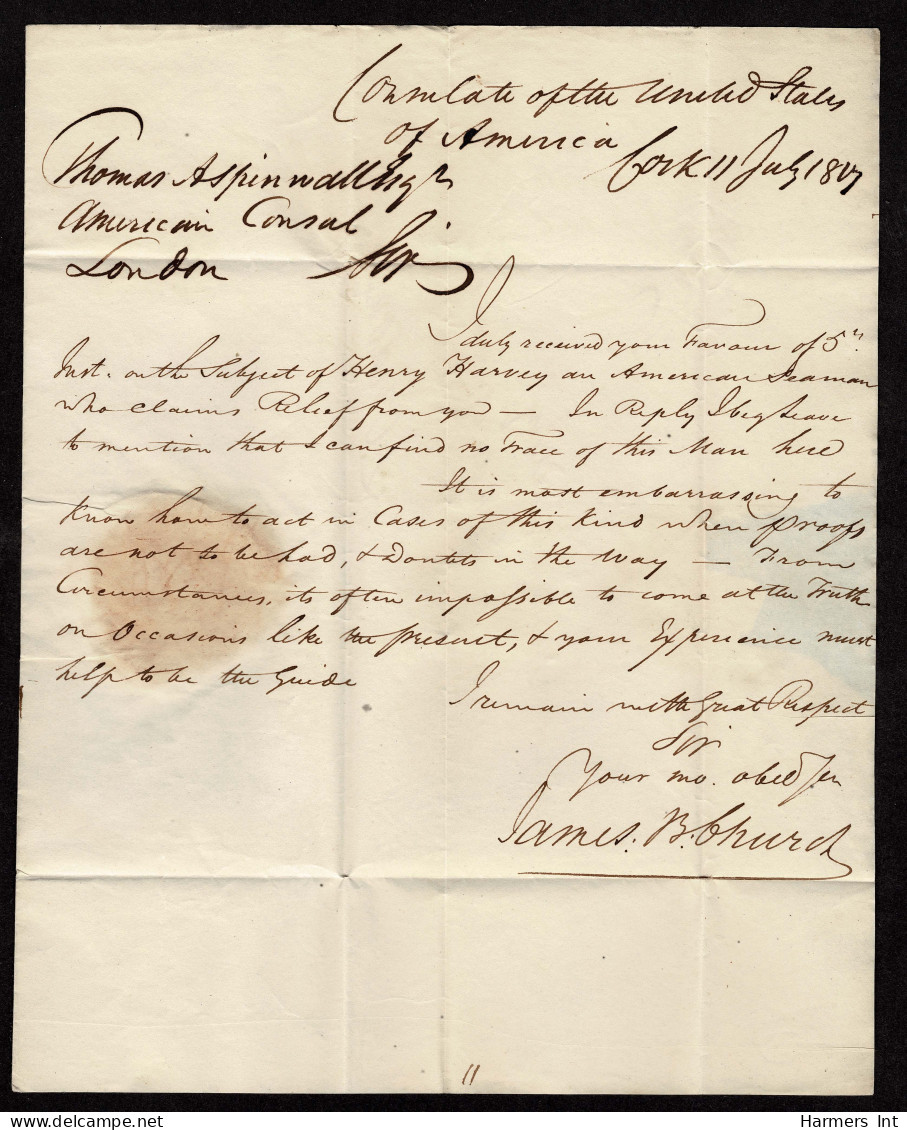 Consulate of the United States
of America
Cork 11 July
Thomas Aspinwall Esqr
American Consul
London Sir
I duly received your Favour of 5th
Inst. on the Subject of Henry Harvey an American Seaman
who claims Relief from you — In Reply I beg Leave
to mention that I can find no Trace of this Man here
It is most embarrassing to
Know how to act in Cases of this Kind when proofs
are not to be had, & Doubts in the Way — From
Circumstances, its often impossible to come at the Truth
on Occasions like the present, & your Experience must
help to be the Guide
I remain with Great Respect
Sir
Your mo. obed Ser
James. B. Church
11
Harmers Int